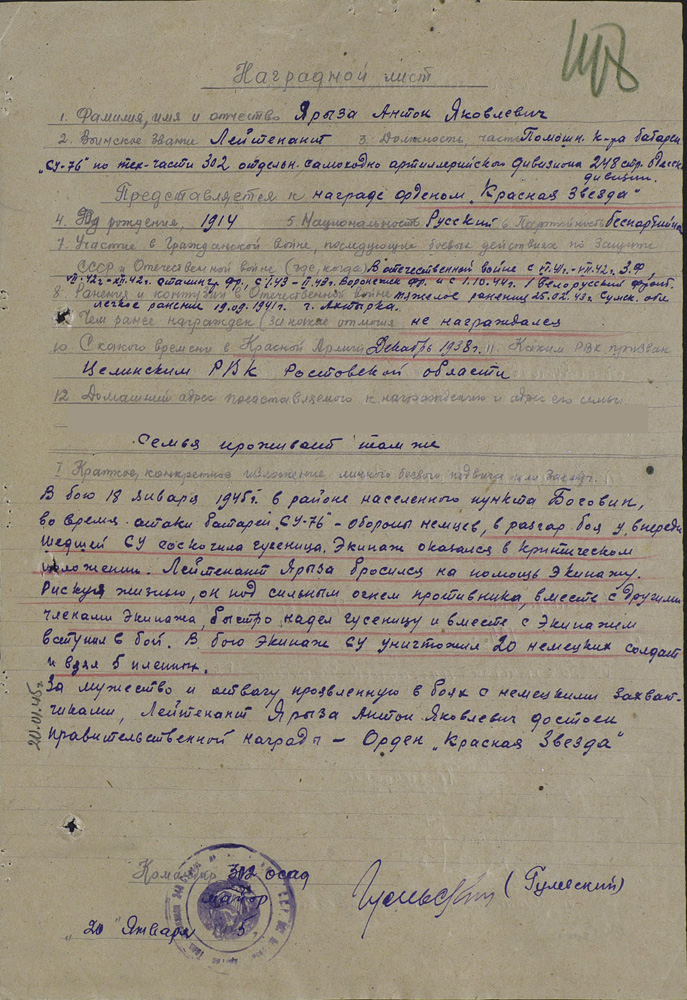 Наградной лист
1. Фамилия, имя и отчество Ярыза Антон Яковлевич
2. Воинское звание Лейтенант 3. Должность, часть Помошн. к-ра батареи
"СУ-76" по тех-части 302 отдельн. самоходно артиллерийского дивизиона 248 стр. Одесск
дивизии.
Представляется к награде орденом "Красная Звезда"
4. Год рождения, 1914 5. Национальность Русский 6. Партийность беспартийн
7. Участие в Гражданской войне, последующие боевые действиях по защите
СССР и Отечественной войне (где, когда) В отечественной войне с VI.41г-VII.42г. З.Ф,
VII-42г-XII.42г. Сталингр. Фр., с I.43-II.43г. Воронежск Фр. и с 1.10.44г. 1 Белорусский фронт.
8. Ранения и контузии в Отечественной войне тяжелое ранение 25.02.43г. Сумск. обл.
легкое ранение 19.09.1941г. г. Ахтырка.
9. Чем ранее награжден (за какие отличия не награждался
10. С какого времени в Красной Армии Декабрь 1938г. 11. Каким РВК призван
Целинским РВК Ростовской области
12. Домашний адрес представляемого к награждению и адрес его семьи
Семья проживает там же
I Краткое, конкретное изложение личного боевого подвига или заслуг.
В бою 18 января 1945г. в районе населенного пункта Боговин,
во время атаки батареи "СУ-76" - обороны немцев, в разгар боя у впереди
шедшей СУ соскочила гусеница. Экипаж оказался в критическом
положении. Лейтенант Ярыза бросился на помощь экипажу.
Рискуя жизнью, он под сильным огнем противника, вместе с другими
членами экипажа, быстро надел гусеницу и вместе с экипажем
вступил в бой. В бою экипаж СУ уничтожил 20 немецких солдат
и взял 5 пленных.
За мужество и отвагу проявленную в боях с немецкими захват-
чиками, Лейтенант Ярыза Антон Яковлевич достоен
правительственной награды - Орден "Красная Звезда"
20.01.45г.
Командир 302 осад
майор
(Гулевский)
"20" Января 5